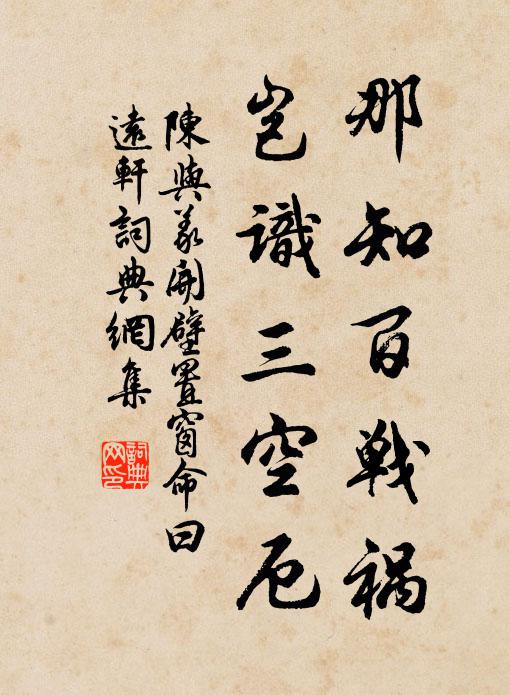 那知百戰禍
豈識三空厄
陳與義開壁置窗命曰
遠軒詞典網集
詞典
网印